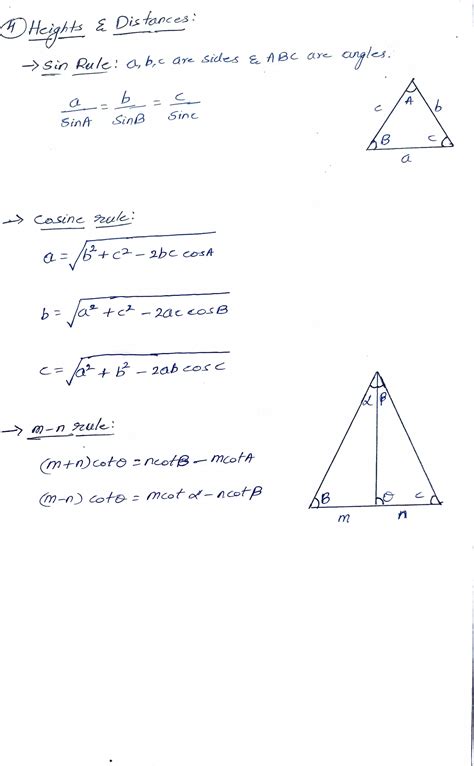 4 Heights & Distances:
→ Sin Rule: a, b, c are sides & ABC are angles.
a/SinA = b/SinB = c/Sinc
A
c b
B C
a
→ Cosine rule:
a = √b² + c² - 2bc cosA
b = √a² + c² - 2ac cosB
c = √a² + b² - 2ab cosC
→ m-n rule:
(m+n) cotθ = ncotB - mcotA
(m-n) cotθ = mcot α - ncotβ
α β
B θ C
m n